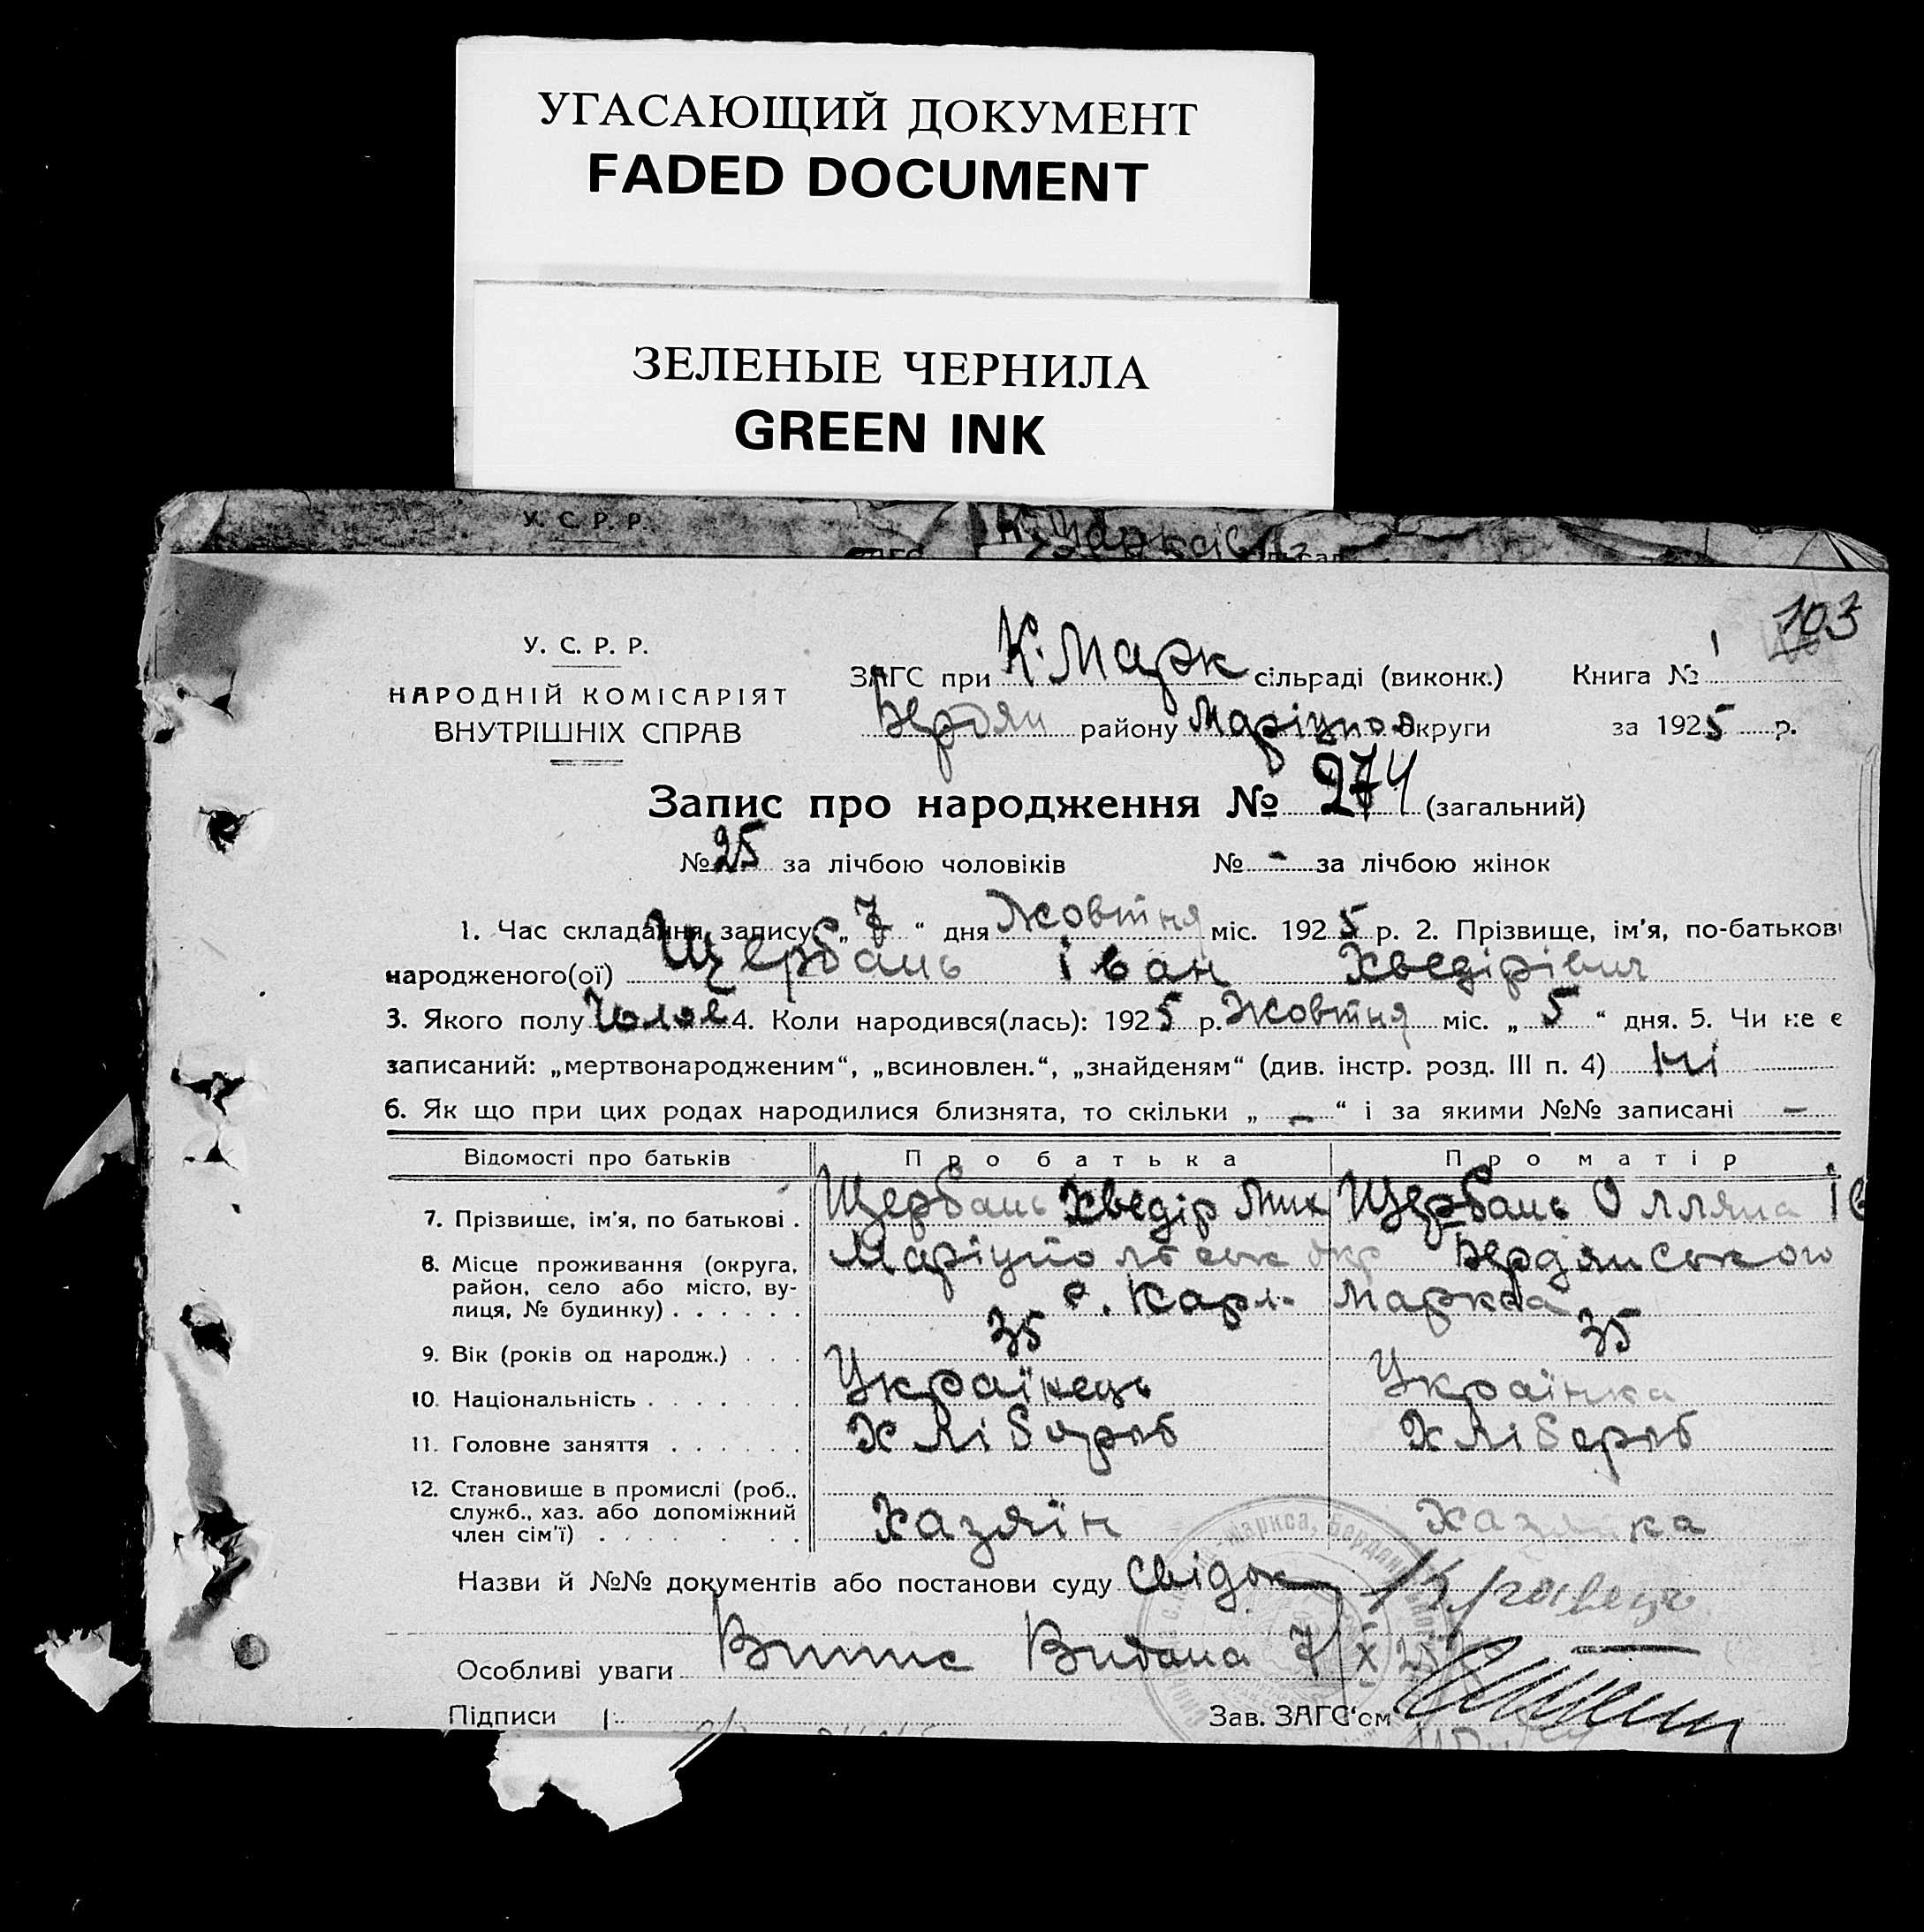 УГАСАЮЩИЙ ДОКУМЕНТ
FADED DOCUMENT
ЗЕЛЕНЫЕ ЧЕРНИЛА
GREEN INK
У. С. Р. Р.
103
У. С. Р. Р.
НАРОДНІЙ КОМІСАРІЯТ
ВНУТРІШНІХ СПРАВ
ЗАГС при К. Марк сільраді (виконк.) Книга № 1
Бердян району Маріупол округи за 1925 р.
Запис про народження № 274 (загальний)
№ 25 за лічбою чоловіків № - за лічбою жінок
1. Час складання запису „ 7 “ дня Жовтня міс. 1925 р. 2. Прізвище, ім'я, по-батькові
народженого(ої) Щербань Іван Хведірівич
3. Якого полу Чолов 4. Коли народився(лась): 1925 р. Жовтня міс. „ 5 “ дня. 5. Чи не є
записаний: „мертвонародженим“, „всиновлен.“, „знайденям“ (див. інстр. розд. III п. 4) ні
6. Як що при цих родах народилися близнята, то скільки „ - “ і за якими №№ записані -
Відомості про батьків Про батька Про матір
7. Прізвище, ім'я, по батькові . Щербань Хведір Мих Щербань Олляна Ів
8. Місце проживання (округа, район, село або місто, ву- лиця, № будинку) . . . . . . Маріупольськ окр Бердянського
с. Карл Маркса
9. Вік (років од народж.) . . . 35 35
10. Національність . . . . . . . Українець Українка
11. Головне заняття . . . . . . Хлібороб Хлібороб
12. Становище в промислі (роб., служб., хаз. або допоміжний член сім'ї) . . . . . . Хазяїн Хазяйка
Назви й №№ документів або постанови суду Свідок Кравець
Особливі уваги Випис Видана 7/X 25
Підписи 1. Зав. ЗАГС'ом